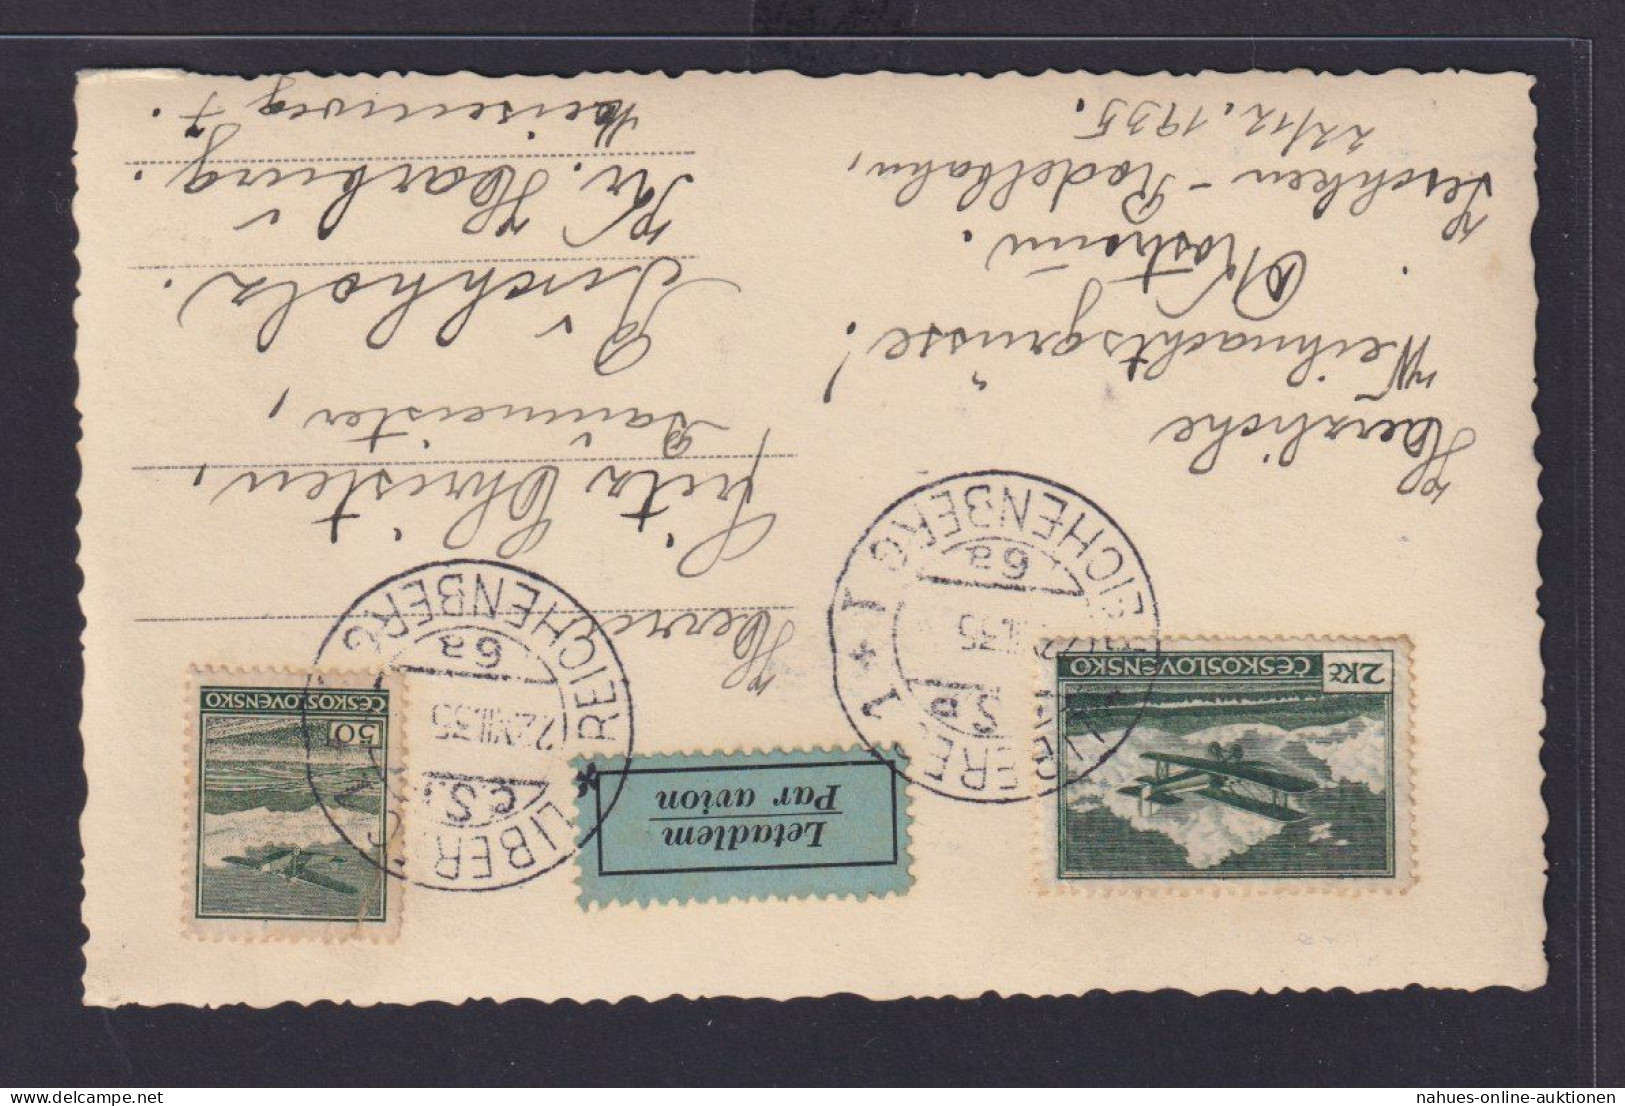 2 Kč
ČESKOSLOVENSKO
Letadlem
Par avion
50
ČESKOSLOVENSKO
LIBEREC 1 * REICHENBERG 1
ČS.
22.XII.35
6a
LIBEREC 1 * REICHENBERG 1
ČS.
22.XII.35
6a
Herzliche
Weihnachtsgrüsse!
Jeschken-Rodelbahn,
22/12.1935.
Herrn
Fritz Christen,
Baumeister,
Buchholz.
Kr. Harburg.
Meisenweg 7.
nahues-online-auktionen